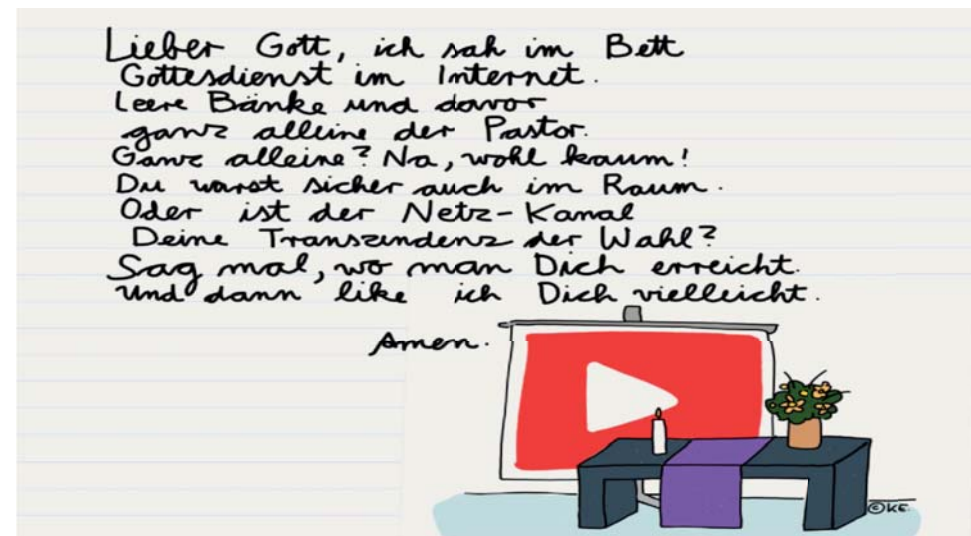 Lieber Gott, ich sah im Bett
Gottesdienst im Internet.
Leere Bänke und davor
ganz alleine der Pastor.
Ganz alleine? Na, wohl kaum!
Du warst sicher auch im Raum.
Oder ist der Netz-Kanal
Deine Transzendenz der Wahl?
Sag mal, wo man Dich erreicht.
Und dann like ich Dich vielleicht.
Amen.
©KE